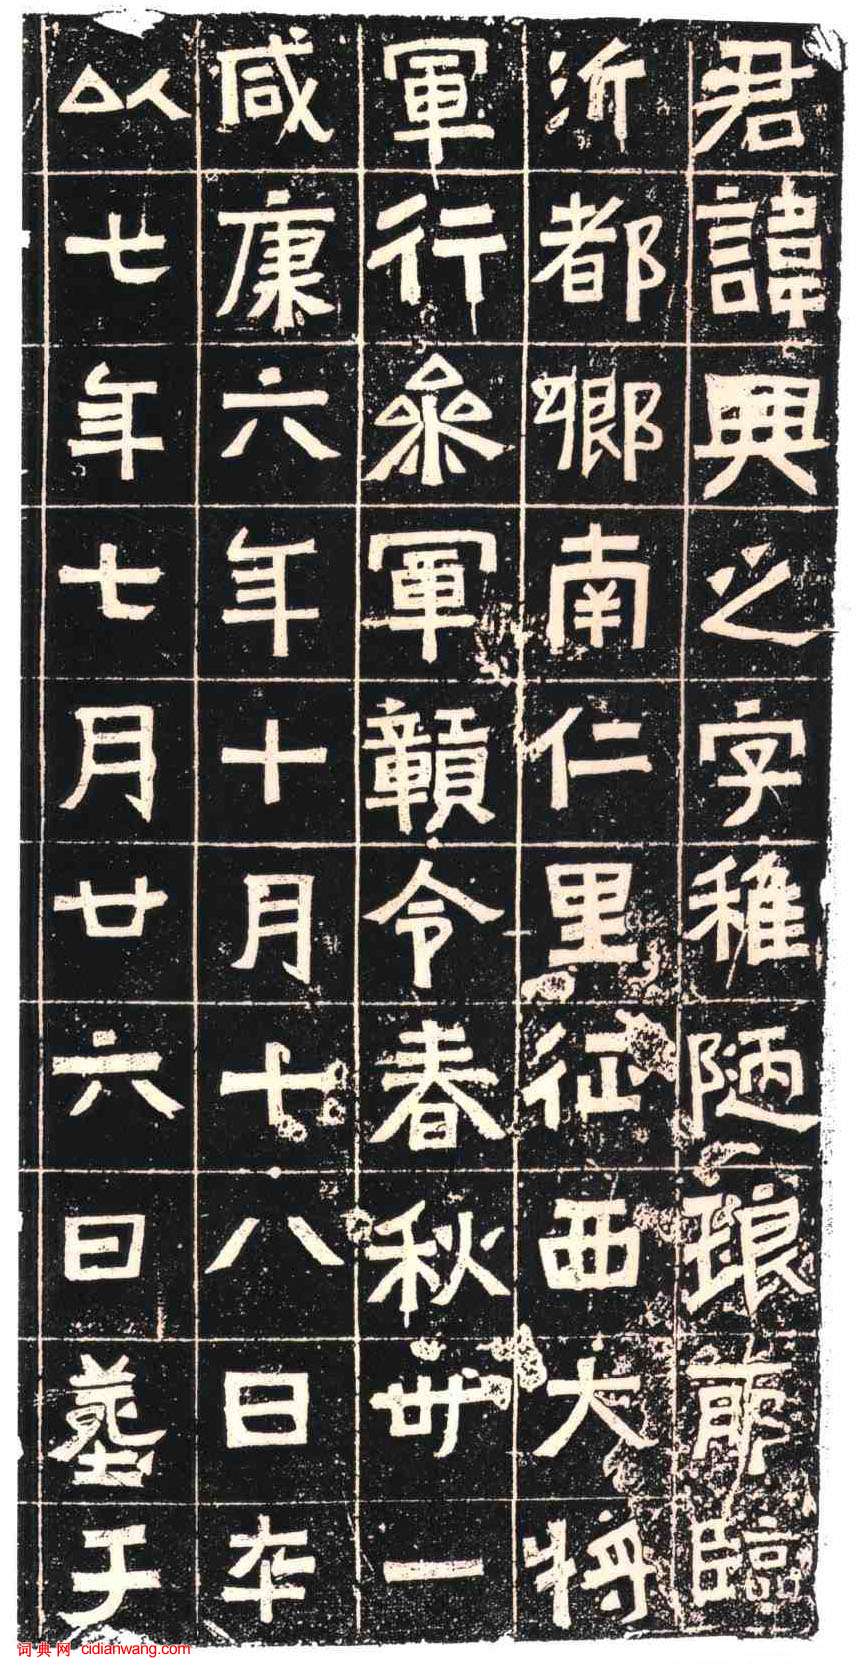 君諱興之字稚陋琅耶臨
沂都鄉南仁里征西大將
軍行參軍贛令春秋卅一
咸康六年十月十八日卒
以七年七月廿六日葬于
词典网 cidianwang.com